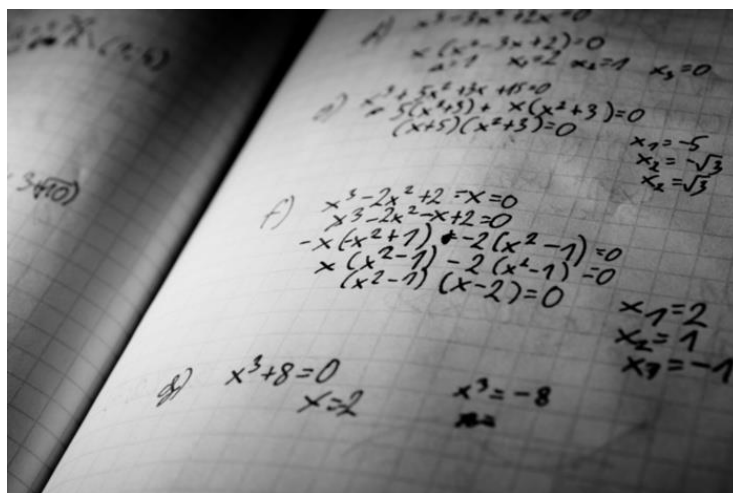 x³-3x²+2x=0
x(x²-3x+2)=0
x₁=2 x₂=1 x₃=0
x³+5x²+3x+15=0
5(x²+3)+x(x²+3)=0
(x+5)(x²+3)=0
x₁=-5
x₂=-√3
x₂=√3
f) x³-2x²+2-x=0
x³-2x²-x+2=0
-x(-x²+1)+-2(x²-1)=0
x(x²-1)-2(x²-1)=0
(x²-1)(x-2)=0
x₁=2
x₂=1
x₃=-1
g) x³+8=0
x=2
x³=-8